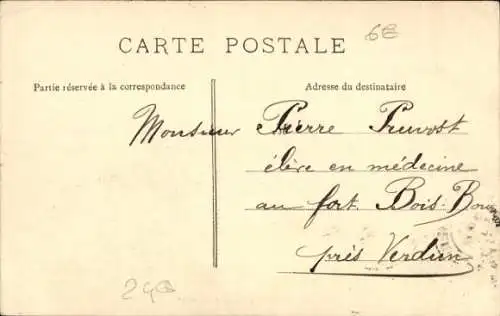 6€
CARTE POSTALE
Partie réservée à la correspondance
Adresse du destinataire
Monsieur Pierre Pruvost
élève en médecine
au fort Bois-Bou
près Verdun